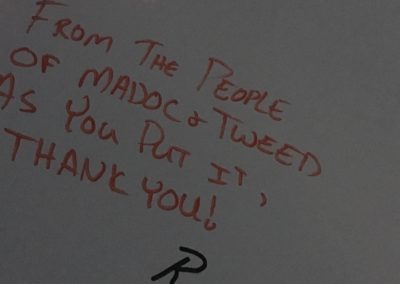 FROM THE PEOPLE
OF MADOC & TWEED
AS YOU PUT IT,
THANK YOU!
R